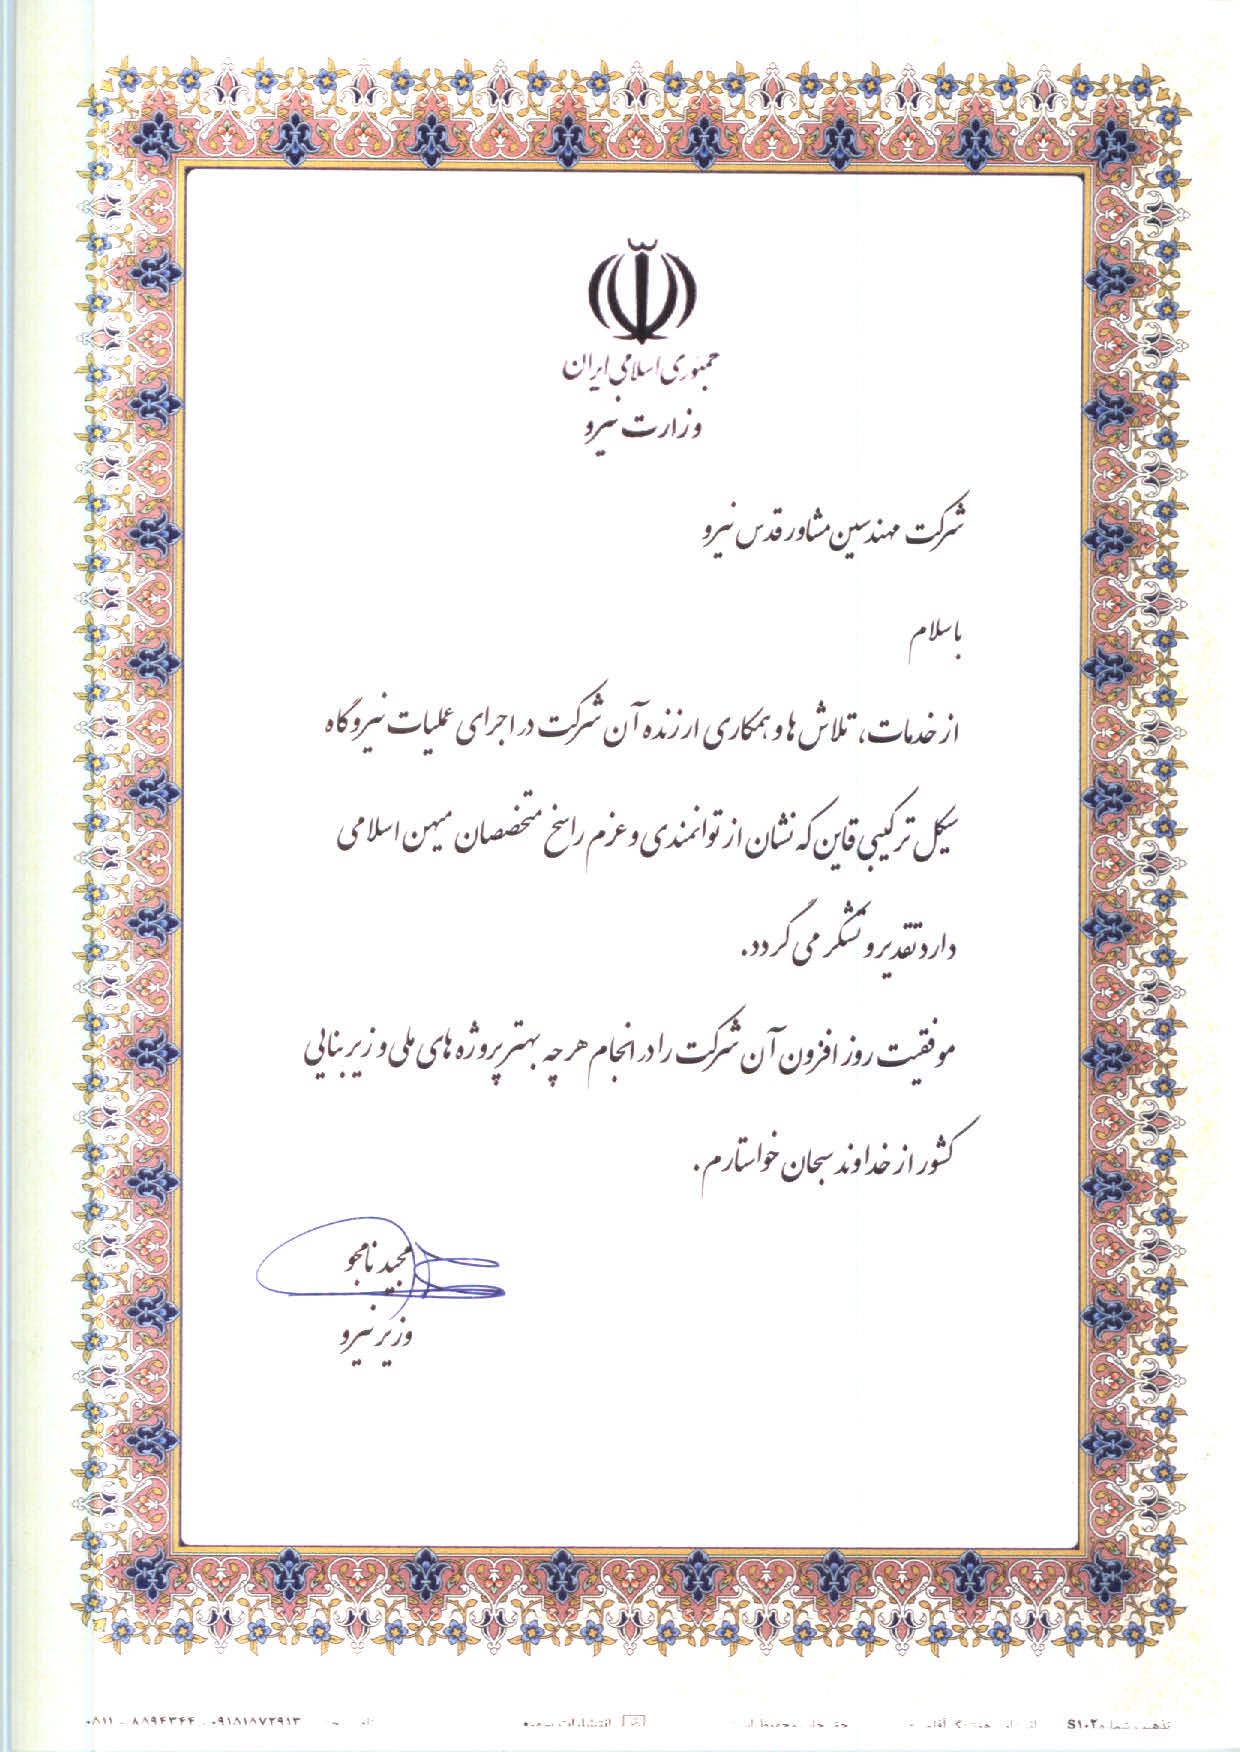 جمهوری اسلامی ایران
وزارت نیرو
شرکت مهندسین مشاور قدس نیرو
با سلام
از خدمات، تلاش ها و همکاری ارزنده آن شرکت در اجرای عملیات نیروگاه
سیکل ترکیبی قاین که نشان از توانمندی و عزم راسخ متخصصان میهن اسلامی
دارد تقدیر و تشکر می گردد.
موفقیت روز افزون آن شرکت را در انجام هر چه بهتر پروژه های ملی و زیربنایی
کشور از خداوند سبحان خواستارم.
مجید نامجو
وزیر نیرو
S۱۰۲ انتشارات ۰۹۱۵۱۵۷۲۹۱۳ - ۸۵۹۴۳۴۴